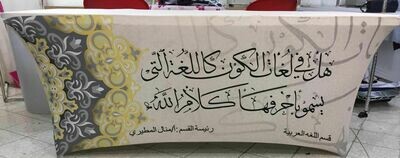 هل في لغات الكون كاللغة التي
يسمو بأحرفها كلام الله
قسم اللغه العربية
رئيسة القسم : أ.منال المطيري